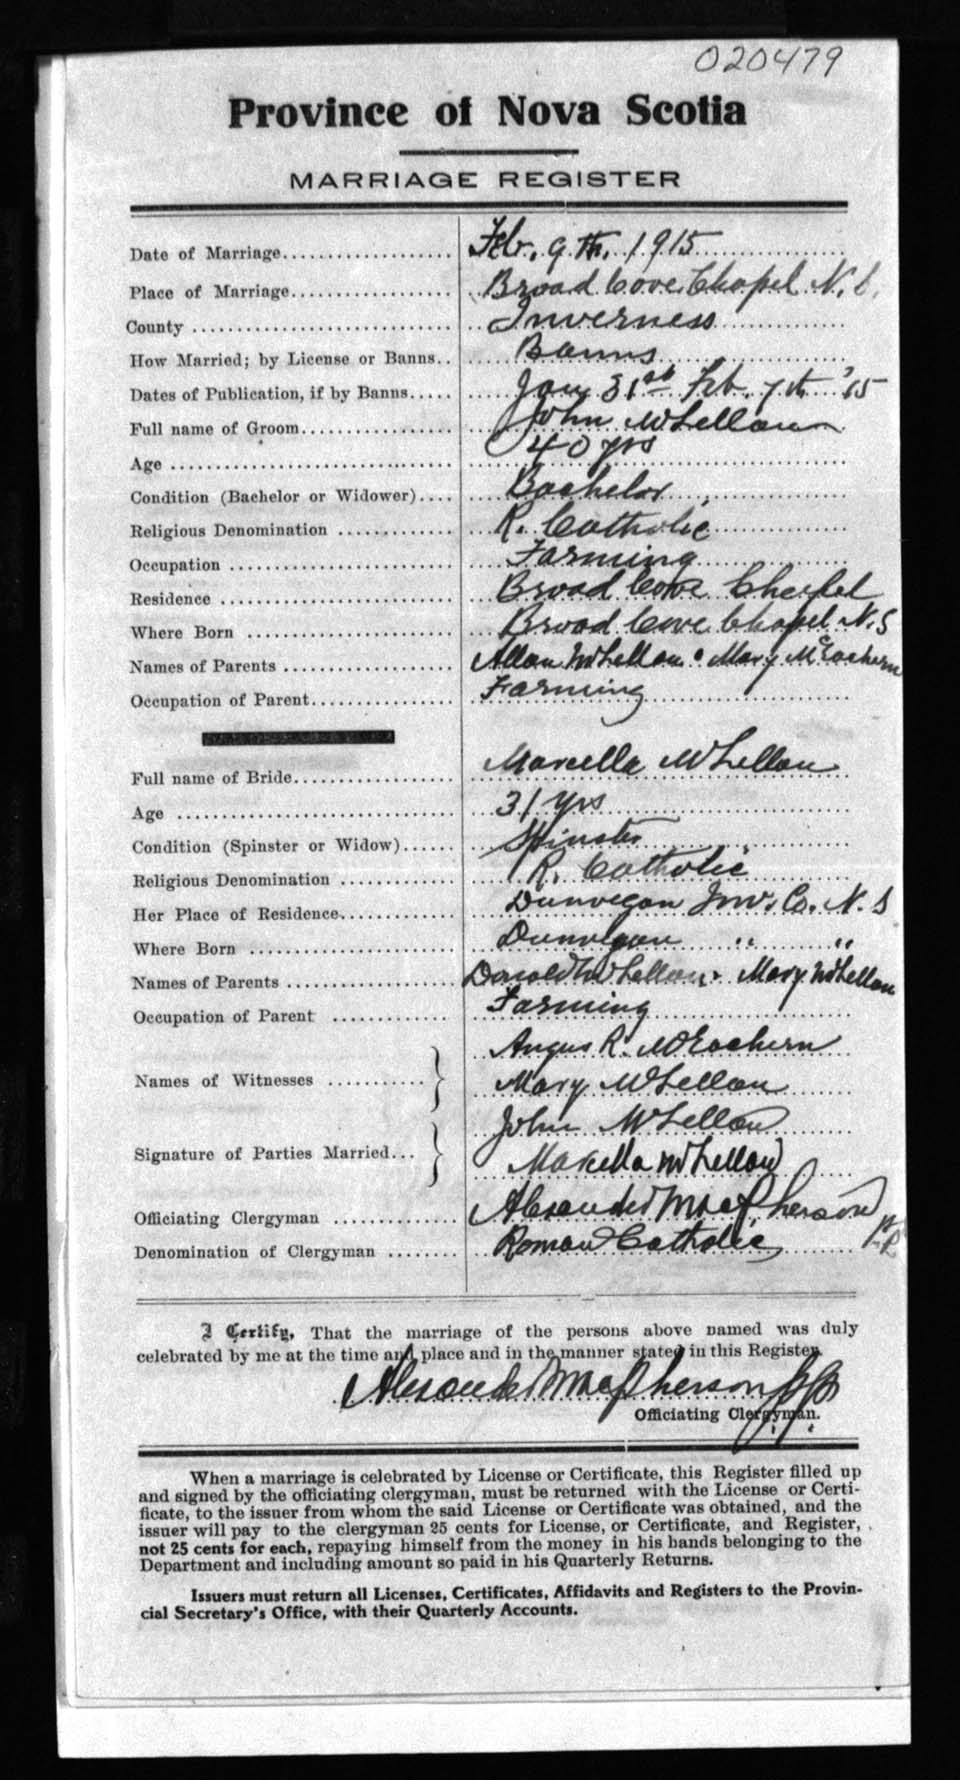 020479
Province of Nova Scotia
MARRIAGE REGISTER
Date of Marriage.................... Feb. 9th. 1915
Place of Marriage................... Broad Cove Chapel N.S.
County .............................. Inverness
How Married; by License or Banns.. Banns
Dates of Publication, if by Banns..... Jan 31st Feb. 7th '15
Full name of Groom.................. John McLellan
Age ................................. 40 yrs
Condition (Bachelor or Widower).... Bachelor
Religious Denomination ............. R. Catholic
Occupation .......................... Farming
Residence ........................... Broad Cove Chapel
Where Born ........................ Broad Cove Chapel N.S
Names of Parents .................... Allan McLellan & Mary McEachern
Occupation of Parent................. Farming
Full name of Bride................... Marcella McLellan
Age ................................. 31 yrs
Condition (Spinster or Widow)...... Spinster
Religious Denomination ............. R. Catholic
Her Place of Residence.............. Dunvegan Inv. Co. N.S
Where Born ........................ Dunvegan " "
Names of Parents .................... Donald McLellan & Mary McLellan
Occupation of Parent .............. Farming
Angus R. McEachern
Names of Witnesses ........... } Mary McLellan
John McLellan
Signature of Parties Married... } Marcella McLellan
Officiating Clergyman .............. Alexander Macpherson P.P.
Denomination of Clergyman ........ Roman Catholic
I Certify, That the marriage of the persons above named was duly
celebrated by me at the time and place and in the manner stated in this Register.
Alexander Macpherson P.P.
Officiating Clergyman.
When a marriage is celebrated by License or Certificate, this Register filled up
and signed by the officiating clergyman, must be returned with the License or Certi-
ficate, to the issuer from whom the said License or Certificate was obtained, and the
issuer will pay to the clergyman 25 cents for License, or Certificate, and Register,
not 25 cents for each, repaying himself from the money in his hands belonging to the
Department and including amount so paid in his Quarterly Returns.
Issuers must return all Licenses, Certificates, Affidavits and Registers to the Provin-
cial Secretary's Office, with their Quarterly Accounts.